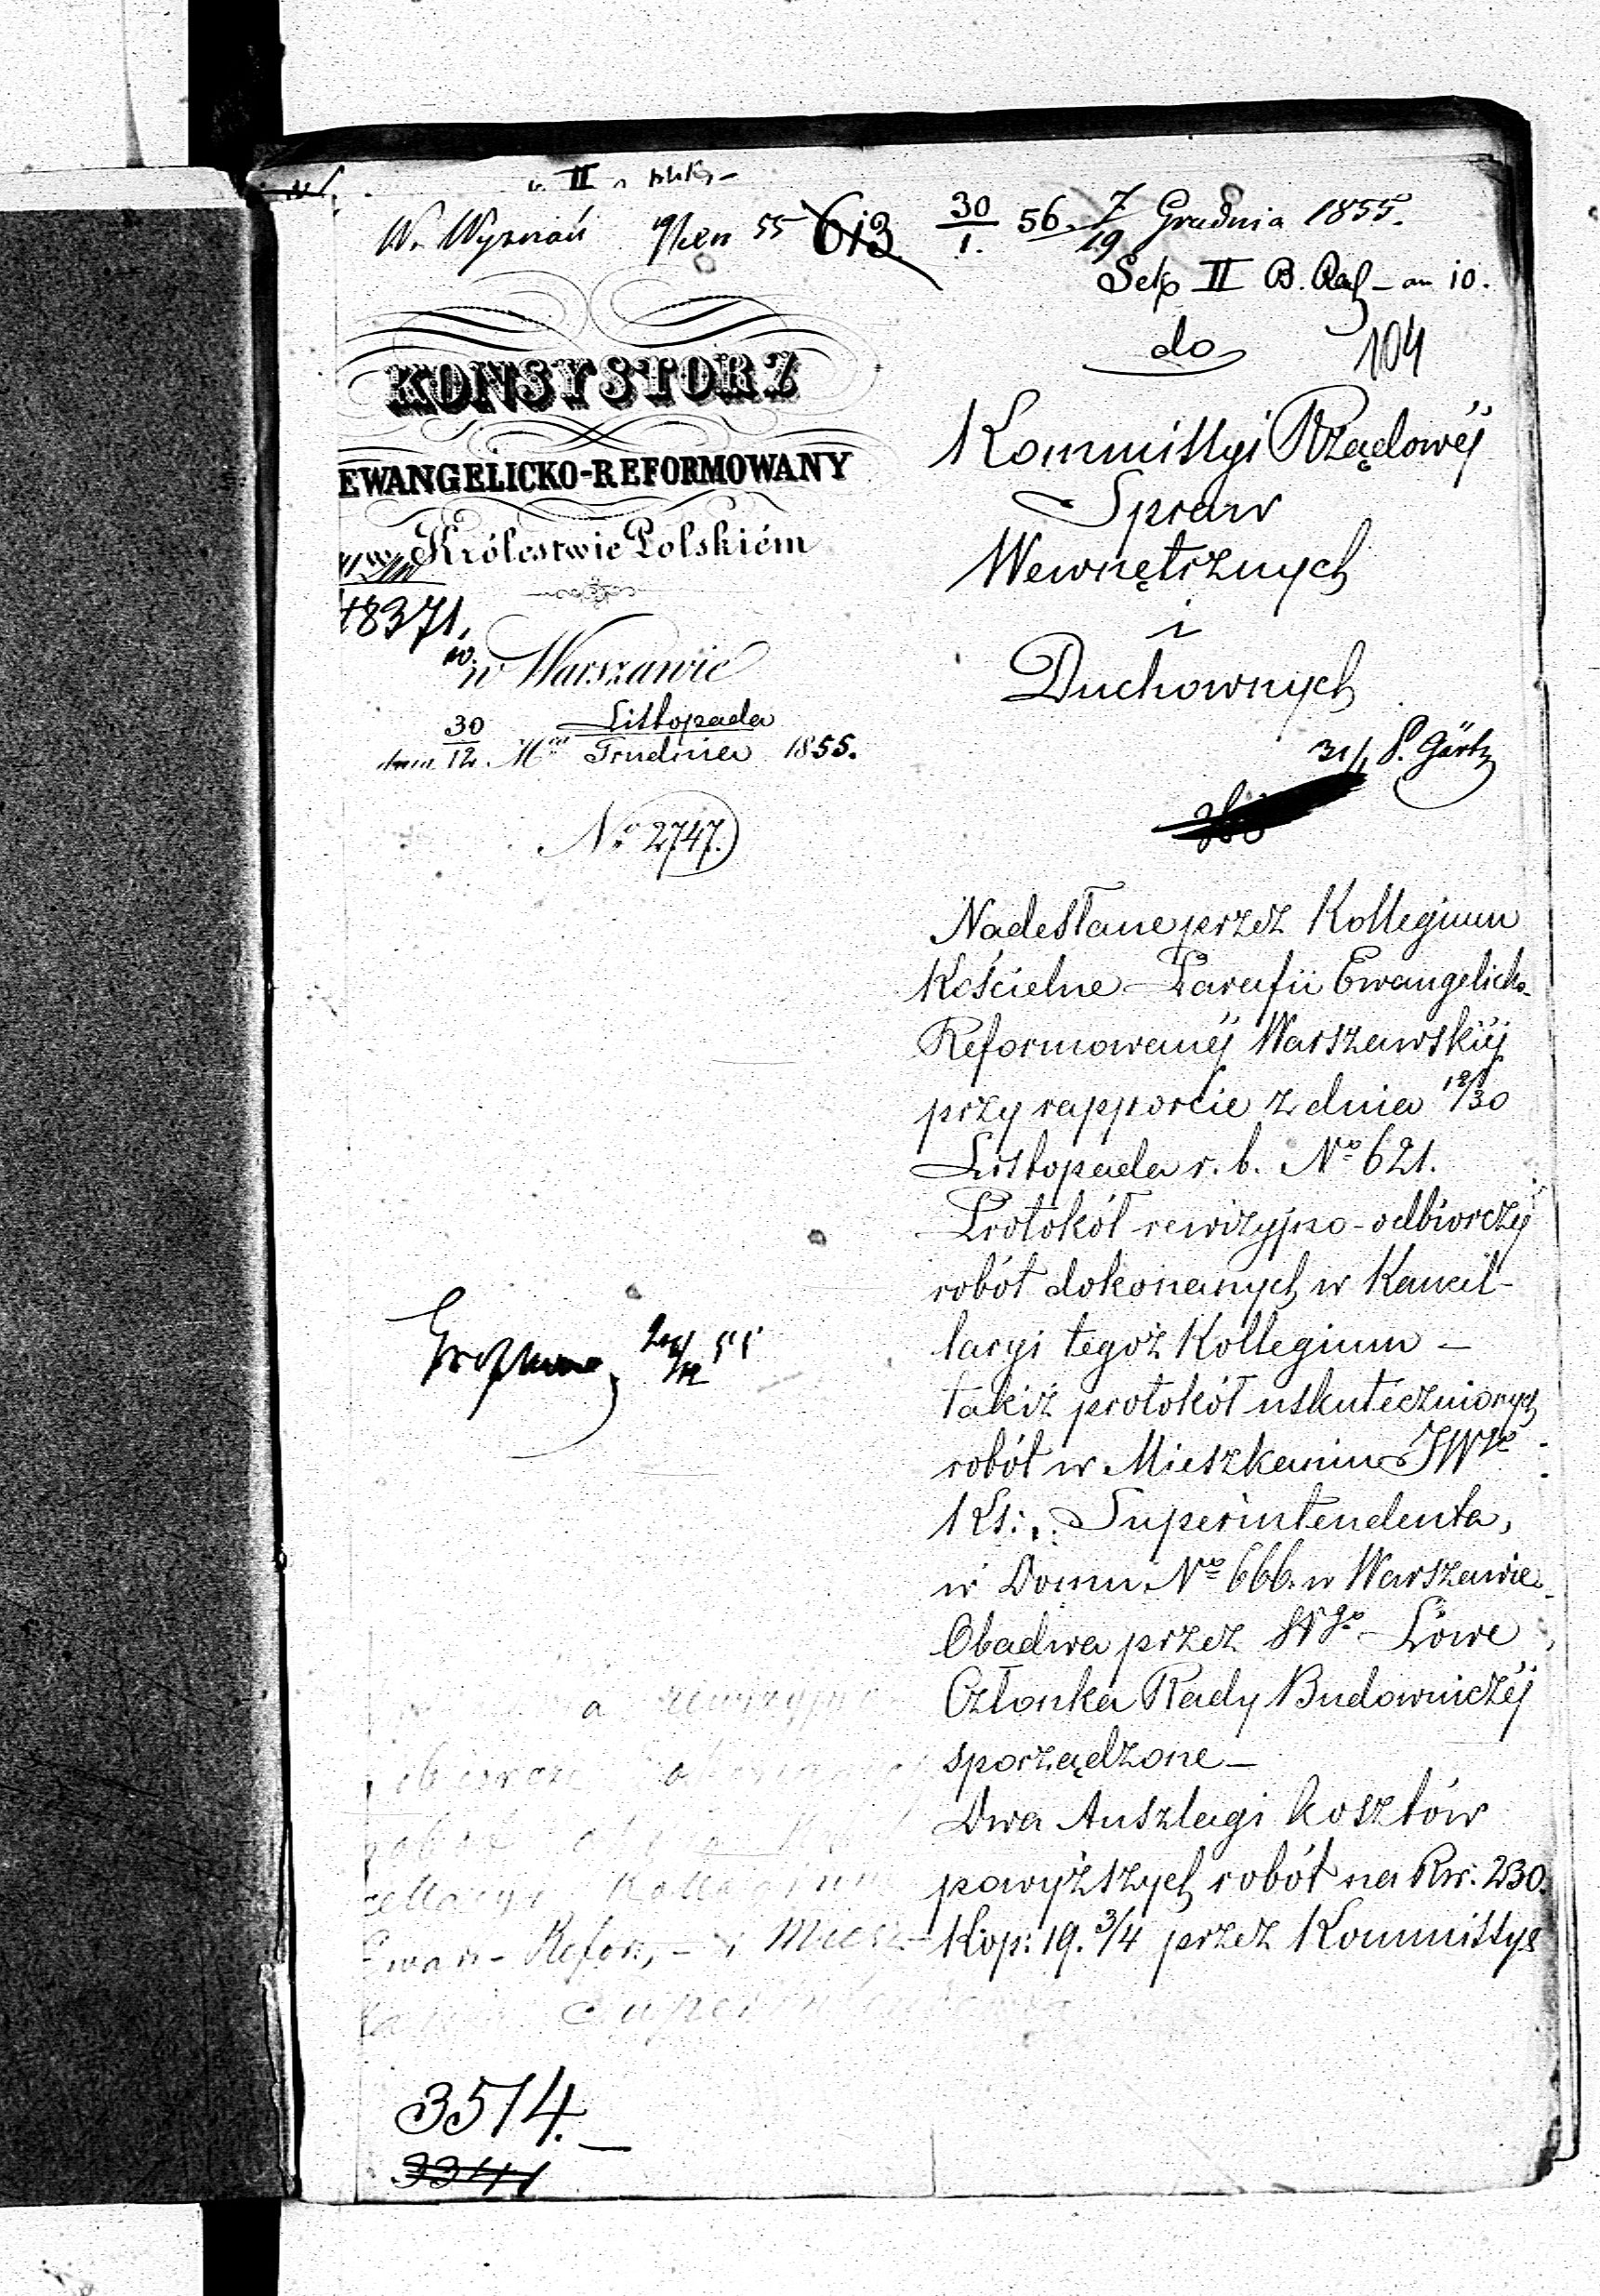 W. Wyznań 55 613 30/1. 56. 7/19 Grudnia 1855.
Sek II B. 10.
do 104
KONSYSTORZ
EWANGELICKO-REFORMOWANY
w Królestwie Polskiém
18371.
w Warszawie
dnia 30/12. Mca Listopada/Grudnia 1855.
No 2747.
Kommissyi Rządowéj
Spraw
Wewnętrznych
i
Duchownych
31/1
Nadesłane przez Kollegium
Kościelne Parafii Ewangelicko-
Reformowanéj Warszawskiéj
przy rapporcie z dnia 18/30
Listopada r. b. No 621.
Protokół rewizyjno-odbiorczy
robót dokonanych w Kancel-
laryi tegoż Kollegium —
takiż protokół uskutecznionych
robót w Mieszkaniu JWgo
Ks: Superintendenta,
w Domu No 666. w Warszawie
Obadwa przez Wgo Löwe
Członka Rady Budowniczéj
sporządzone —
Dwa Anszlagi kosztów
powyższych robót na Rsr. 230.
Kop: 19. 3/4 przez Kommissyę
rewizyjno
Refor, - i Miesz-
3514. —
3341